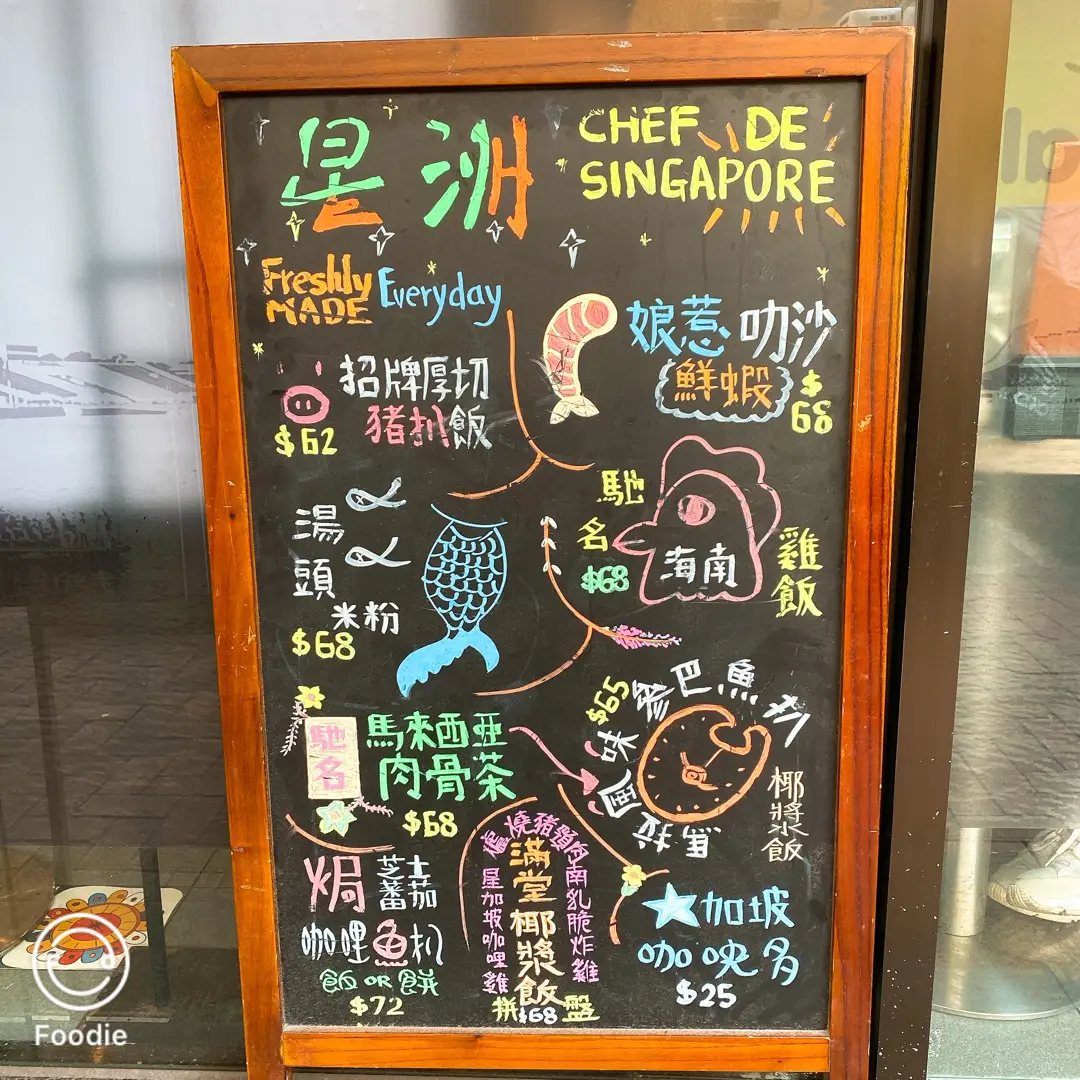 星洲
CHEF DE
SINGAPORE
Freshly
MADE
Everyday
招牌厚切
豬扒飯
$62
娘惹叻沙
鮮蝦
$68
湯頭
米粉
$68
馳名
海南
雞飯
$68
馳名
馬來西亞
肉骨茶
$68
馬拉風味參巴魚扒
$65
椰漿飯
焗芝士
蕃茄
咖喱魚扒
飯 OR 餅
$72
爐燒豬頸肉南乳脆炸雞
星加坡咖哩雞
滿堂椰漿飯
拼盤
$68
★加坡
咖央多
$25
Foodie